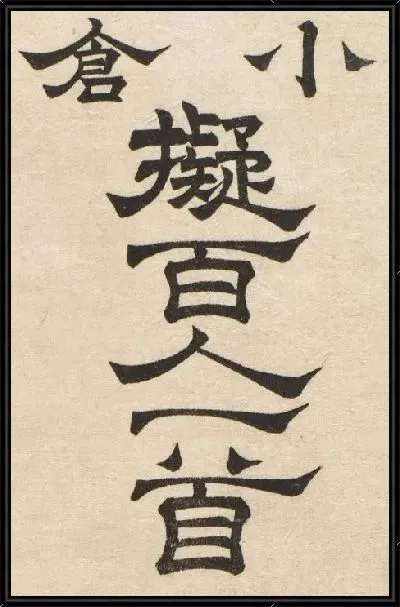 小倉
擬百人一首